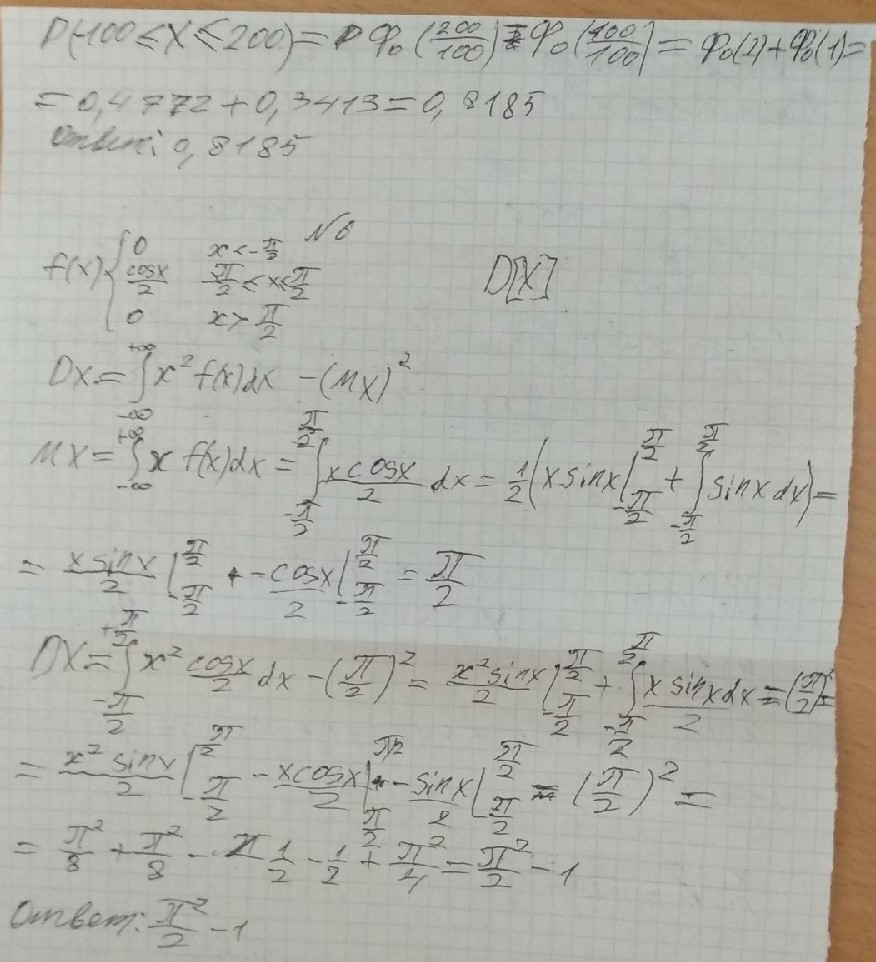 P(-100≤X≤200)= Φ₀(200/100) + Φ₀(100/100) = Φ₀(2)+Φ₀(1)=
=0,4772+0,3413=0,8185
Ответ: 0,8185
N6
f(x) { 0 x<-π/2
cosx/2 -π/2≤x≤π/2 D[X]
0 x>π/2
DX=∫_{-∞}^{+∞} x² f(x)dx -(MX)²
MX=∫_{-∞}^{+∞} x f(x)dx = ∫_{-π/2}^{π/2} xcosx/2 dx = 1/2(xsinx|_{-π/2}^{π/2} + ∫_{-π/2}^{π/2} sinxdx)=
= xsinx/2 |_{-π/2}^{π/2} + -cosx/2 |_{-π/2}^{π/2} = π/2
DX=∫_{-π/2}^{+π/2} x² cosx/2 dx -(π/2)² = x²sinx/2 |_{-π/2}^{π/2} + ∫_{-π/2}^{π/2} xsinxdx/2 = (π/2)²=
= x²sinx/2 |_{-π/2}^{π/2} - xcosx/2 |_{π/2}^{π/2} - sinx/2 |_{-π/2}^{π/2} = (π/2)² =
= π²/8 + π²/8 - 1/2 - 1/2 + π²/4 = π²/2 -1
Ответ: π²/2 -1